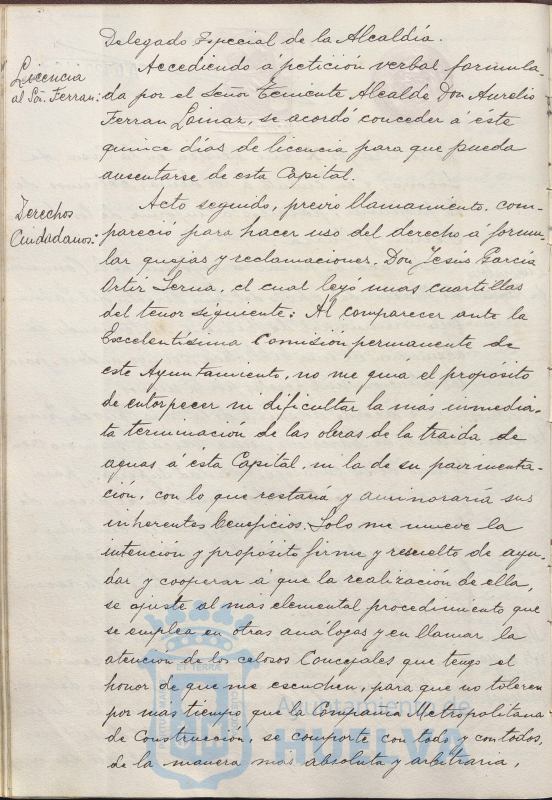 Delegado Especial de la Alcaldía.
Licencia
al Sor. Ferran:
Accediendo a petición verbal formula-
da por el Señor Teniente Alcalde Don Aurelio
Ferran Loinaz, se acordó conceder á este
quince dias de licencia para que pueda
ausentarse de esta Capital.
Derechos
Ciudadanos:
Acto seguido, previo llamamiento, com-
pareció para hacer uso del derecho á formu-
lar quejas y reclamaciones, Don Jesús García
Ortiz Serna, el cual leyó unas cuartillas
del tenor siguiente: Al comparecer ante la
Excelentísima Comisión permanente de
este Ayuntamiento, no me guia el propósito
de entorpecer ni dificultar la más inmedia-
ta terminación de las obras de la traida de
aguas á esta Capital, ni la de su pavimenta-
ción, con lo que restaria y aminoraría sus
inherentes beneficios. Solo me mueve la
intención y propósito firme y resuelto de ayu-
dar y cooperar á que la realización de ella,
se ajuste al más elemental procedimiento que
se emplea en otras análogas y en llamar la
atención de los celosos Concejales que tengo el
honor de que me escuchen, para que no toleren
por mas tiempo que la Compañia Metropolitana
de Construcción, se comporte con todo y con todos,
de la manera mas absoluta y arbitraria,
Ayuntamiento de
HUELVA